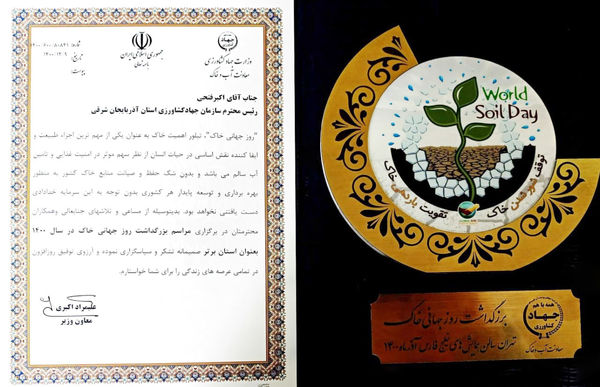 شماره: ۱۴۰۰/۶۰۰/۸۰۸۴۹
تاریخ: ۱۴۰۰/۱۲/۰۹
پیوست:
جمهوری اسلامی ایران
باسمه تعالی
جهاد
وزارت جهاد کشاورزی
معاونت آب و خاک
جناب آقای اکبرفتحی
رئیس محترم سازمان جهادکشاورزی استان آذربایجان شرقی
"روز جهانی خاک"، تبلور اهمیت خاک به عنوان یکی از مهم ترین اجزاء طبیعت و
ایفا کننده نقش اساسی در حیات انسان از نظر سهم موثر در امنیت غذایی و تامین
آب سالم می باشد و بدون شک حفظ و صیانت منابع خاک کشور به منظور
بهره برداری و توسعه پایدار هر کشوری بدون توجه به این سرمایه خدادادی
دست یافتنی نخواهد بود. بدینوسیله از مساعی و تلاشهای جنابعالی وهمکاران
محترمتان در برگزاری مراسم بزرگداشت روز جهانی خاک در سال ۱۴۰۰
بعنوان استان برتر صمیمانه تشکر و سپاسگزاری نموده و آرزوی توفیق روزافزون
در تمامی عرصه های زندگی را برای شما خواستارم.
علیمراد اکبری
معاون وزیر
World
Soil Day
توقف شور شدن خاک
تقویت باروری خاک
همه با هم
جهاد
کشاورزی
معاونت آب و خاک
بزرگداشت روز جهانی خاک
تهران سالن همایش های خلیج فارس آذر ماه ۱۴۰۰